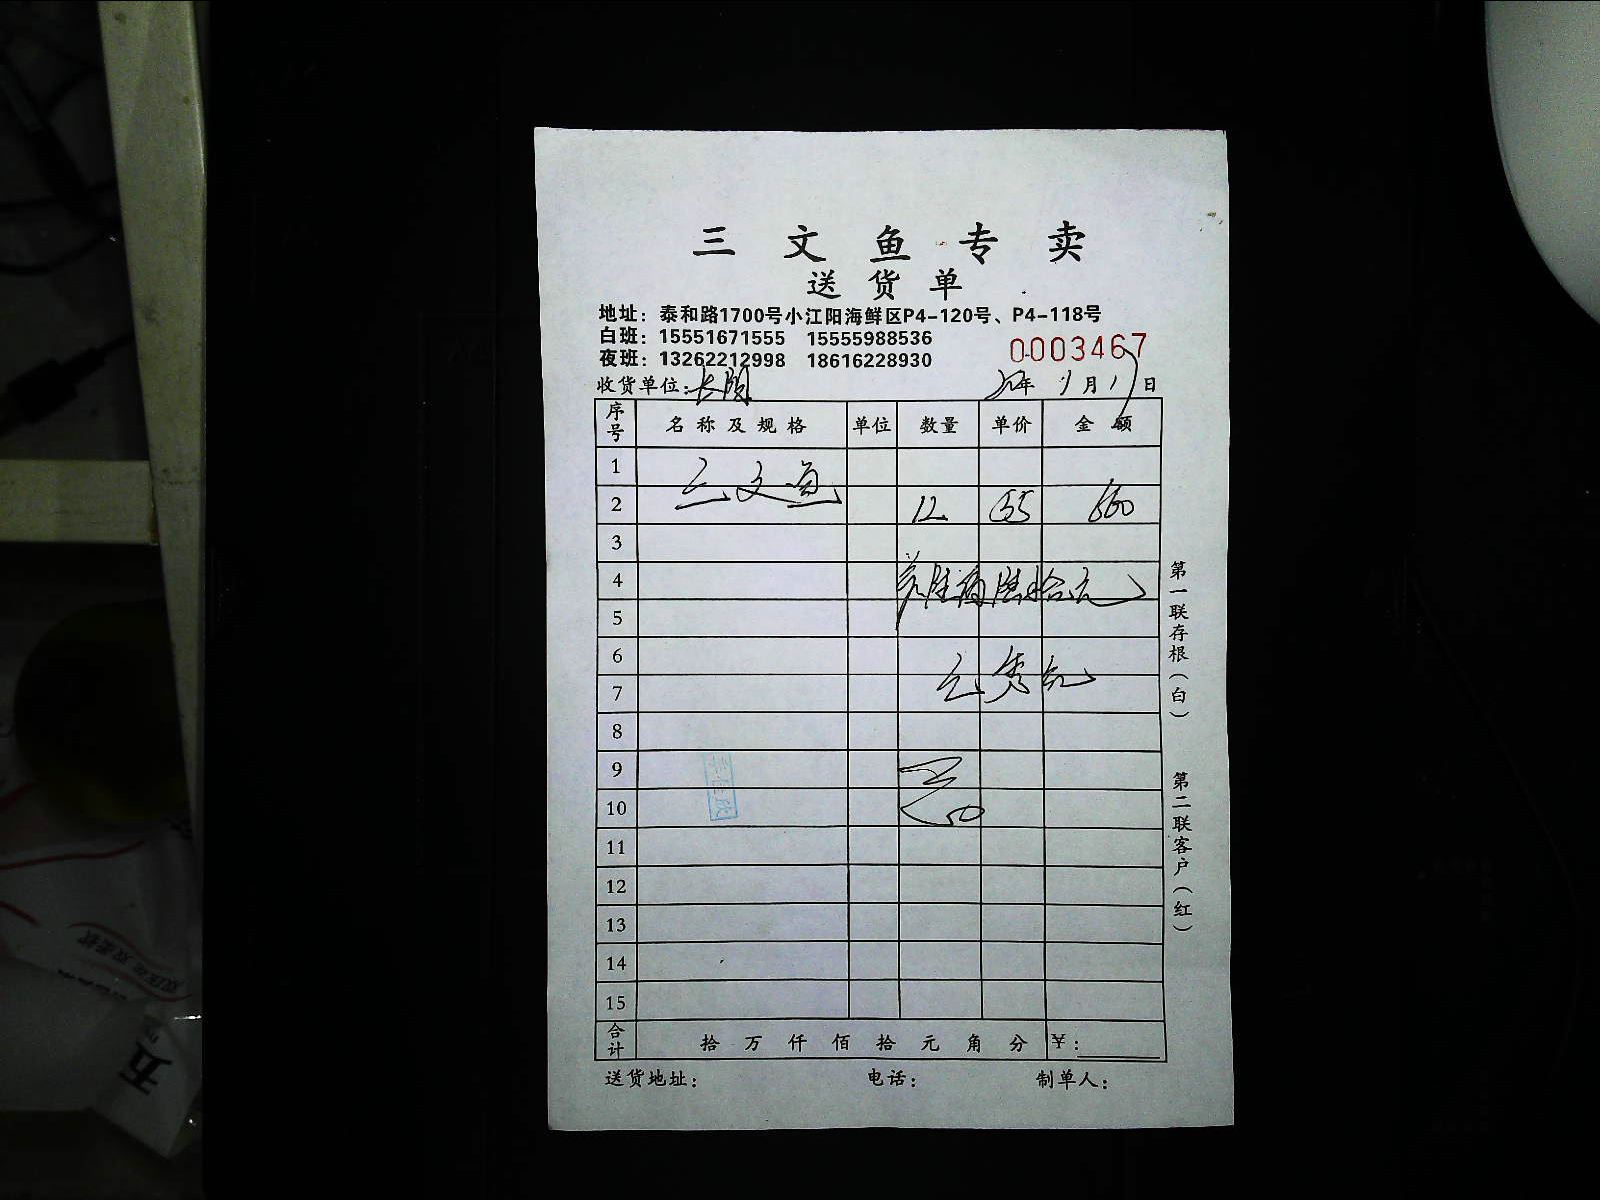 三文鱼专卖
送货单
地址：泰和路1700号小江阳海鲜区P4-120号、P4-118号
白班：15551671555 15555988536
夜班：13262212998 18616228930
0003467
收货单位：长阳 年 1月17日
序号 名称及规格 单位 数量 单价 金额
1 三文鱼
2 12 55 660
3
4 陆佰陆拾元
5
6
7
8
9
10
11
12
13
14
15
合计 拾万仟佰拾元角分 ￥：
送货地址： 电话： 制单人：
第一联存根（白）
第二联客户（红）
五